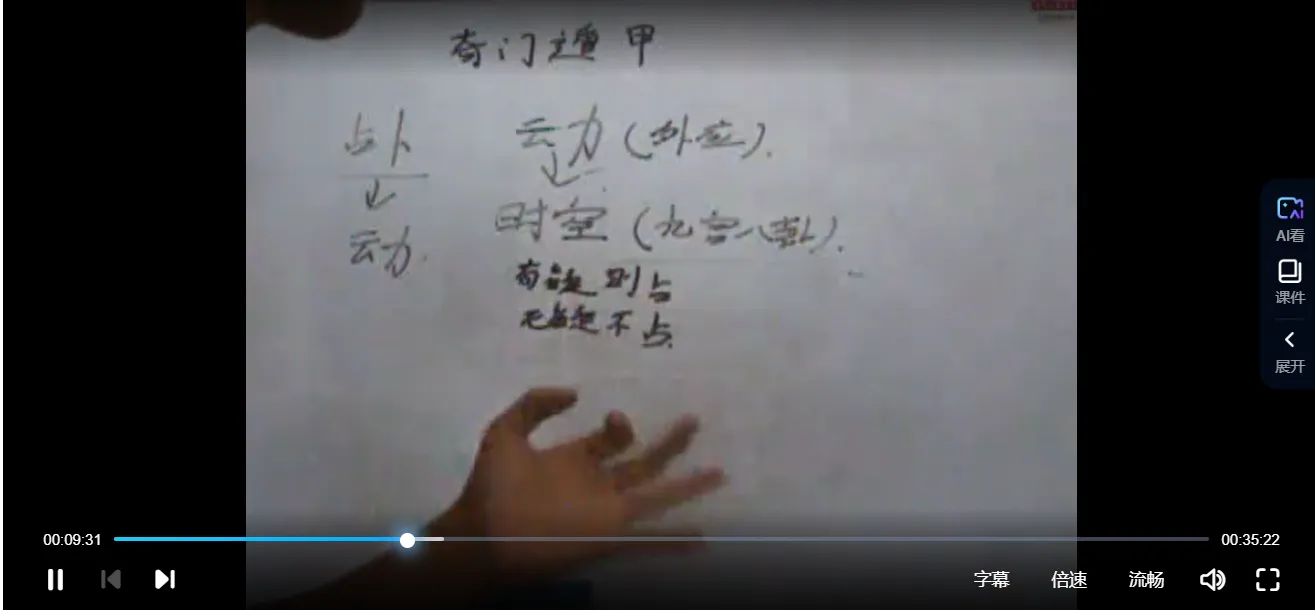 奇门遁甲
占卜 动力(外应).
↓ ↓
时空(九宫八卦).
动力.
有
则占
不占.
AI看
课件
展开
00:09:31 00:35:22
字幕 倍速 流畅